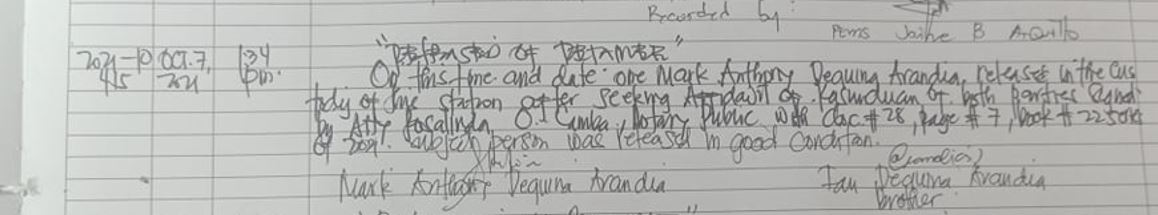 Recorded by:
Pems Jaihe B Arquillo
2021-10 Oct. 7, 134 "
415 2021 pm. On this time and date one Mark Anthony Dequina Arandia, released in the cus
tody of this station after seeking Affidavit of Kasunduan of both parties signed
by Atty Rosalinda O. Camba, Notary Public with doc # 28, page # 7, book # 22
of 2021. Subject person was released in good condition.
Mark Anthony Dequina Arandia Ian Dequina Arandia
brother